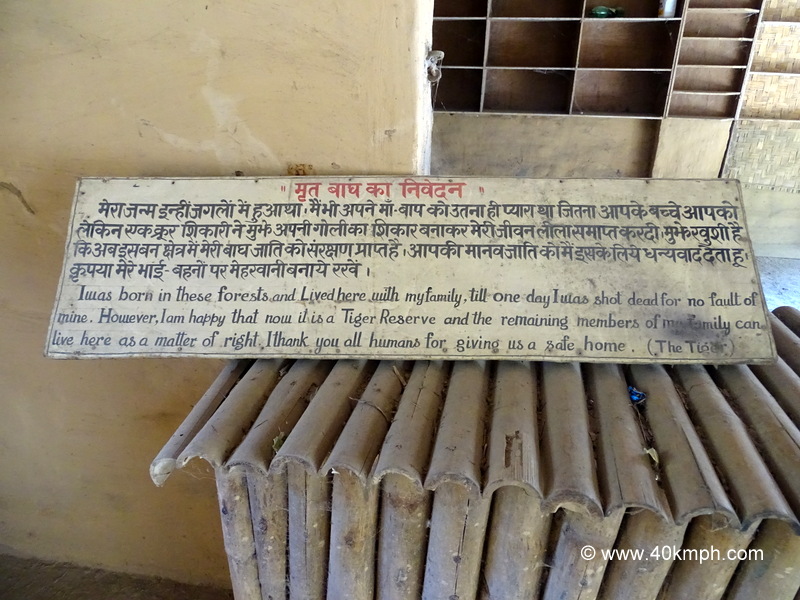 " मृत बाघ का निवेदन "
मेरा जन्म इन्हीं जगलों में हुआ था। मैं भी अपने माँ-बाप को उतना ही प्यारा था जितना आपके बच्चे आपको
लेकिन एक क्रूर शिकारी ने मुझे अपनी गोली का शिकार बनाकर मेरी जीवन लीला समाप्त कर दी, मुझे खुशी है
कि अब इस वन क्षेत्र में मेरी बाघ जाति को संरक्षण प्राप्त है। आपकी मानव जाति को मैं इसके लिये धन्यवाद देता हू।
कृपया मेरे भाई-बहनों पर मेहरवानी बनाये रखे।
I was born in these forests and Lived here with my family, till one day I was shot dead for no fault of
mine. However, I am happy that now it is a Tiger Reserve and the remaining members of my family can
live here as a matter of right, I thank you all humans for giving us a safe home. (The Tiger)
© www.40kmph.com